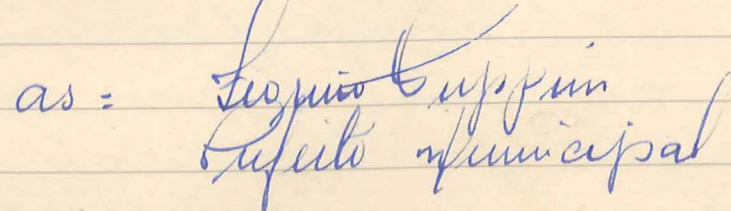 as = Zeguino Cuppim
Prefeito Municipal